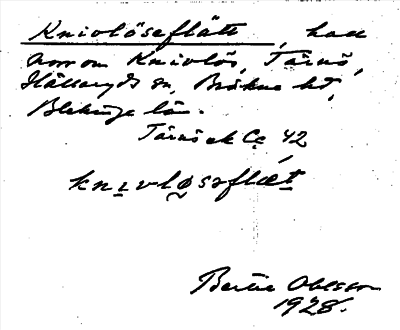 Knivlöseflätt, had
norr om Knivlös, Tärnö,
Hällaryds sn, Bräkne hd,
Blekinge län.
Tärnö ek Cc 42
knɪvløsəflæt
Bertil Ohlsson
1928.